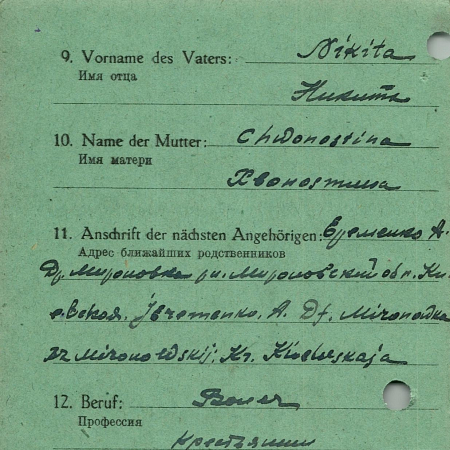 9. Vorname des Vaters: Nikita
Имя отца
Никита
10. Name der Mutter: Chwonostina
Имя матери
Хвоностина
11. Anschrift der nächsten Angehörigen: Еременко А.
Адрес ближайших родственников
Д. Мироновка рн. Мироновский обл. Ки
евская. Jeremenko. A. Df. Mironowka
rz Mironowskij. Kr. Kiewskaja
12. Beruf: Bauer
Профессия
крестьянин